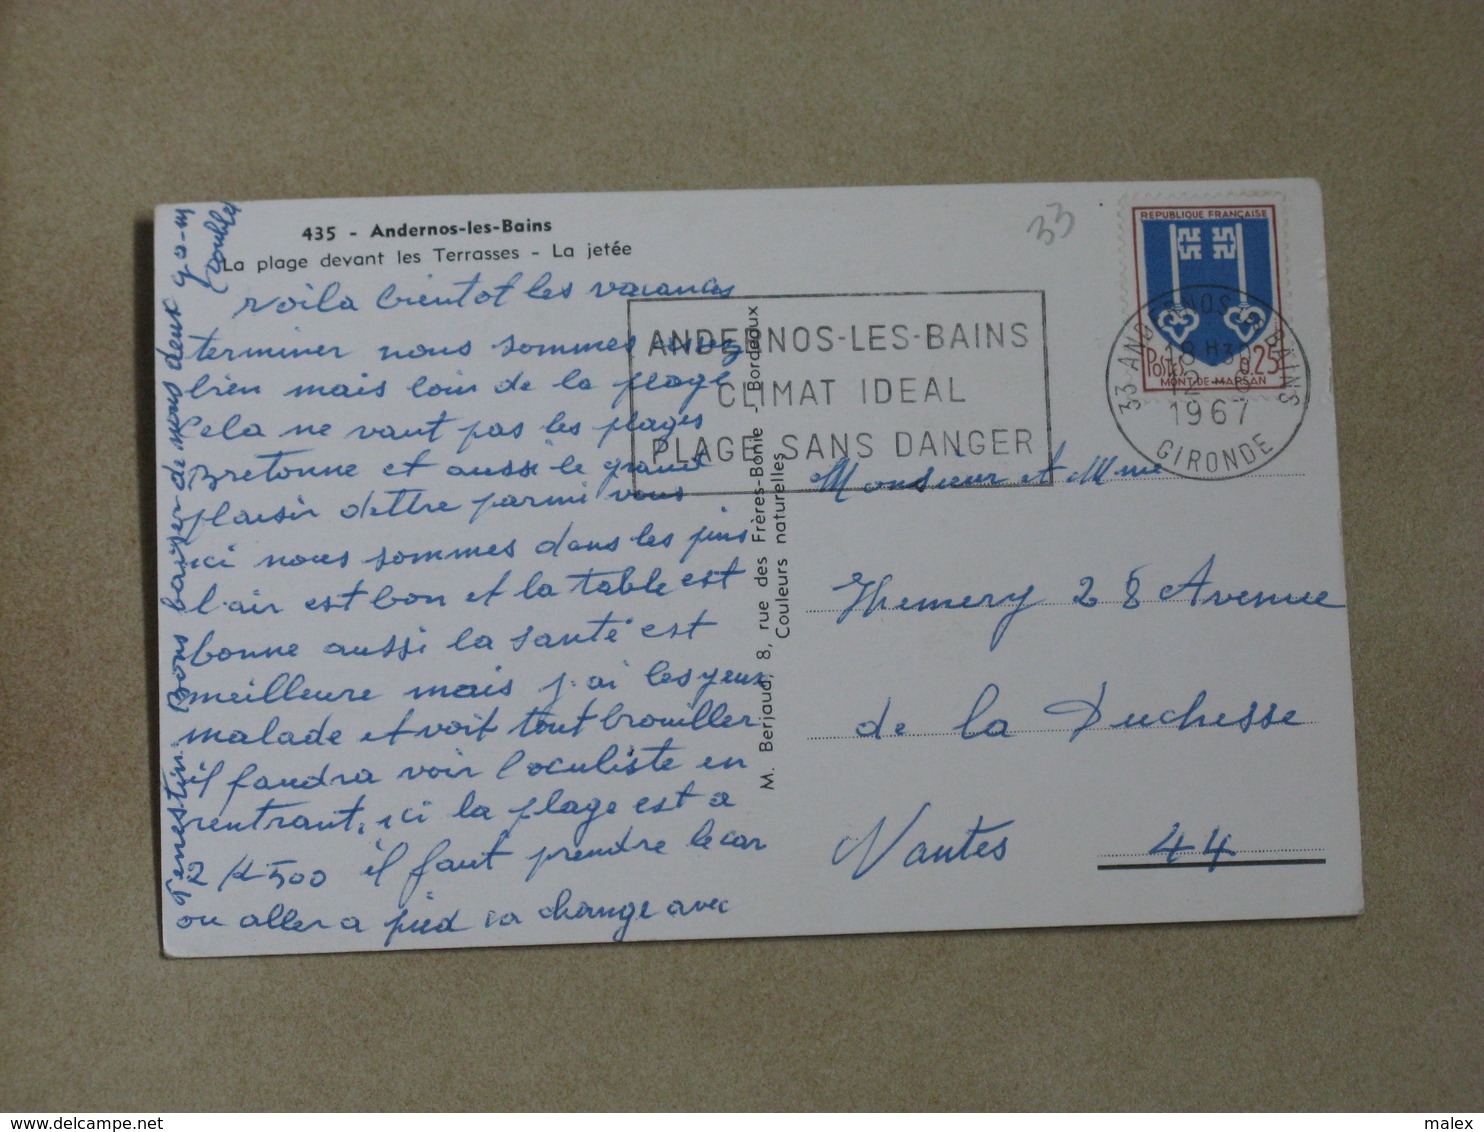 435 - Andernos-les-Bains
La plage devant les Terrasses - La jetée
Voila bientot les vacances
terminer nous sommes
bien mais loin de la plage
Cela ne vaut pas les plages
Bretonne et aussi le grand
plaisir dettre parmi vous
ici nous sommes dans les pins
l'air est bon et la table est
bonne aussi la santé est
meilleure mais j'ai les yeux
malade et voit tout brouiller
il faudra voir l'oculiste en
rentrant, ici la plage est a
2 K 500 il faut prendre le car
ou aller a pied sa change avec
Bons baiser de nous deux
M. Berjaud, 8, rue des Frères-Bonie - Bordeaux
Couleurs naturelles
ANDERNOS-LES-BAINS
CLIMAT IDEAL
PLAGE SANS DANGER
33
REPUBLIQUE FRANÇAISE
POSTES 0.25
MONT-DE-MARSAN
33 ANDERNOS-LES-BAINS
18 H 30
1967
GIRONDE
Monsieur et Mme
Themery 28 Avenue
de la Duchesse
Nantes 44
delcampe.net
malex